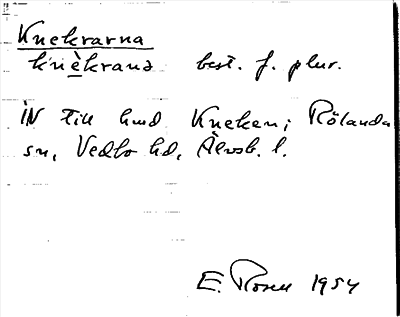 Knekrarna
knèkrana best. f. plur.
IN till hmd Kneken i Rölanda
sn, Vedbo hd, Älvsb. l.
E. Rosell 1954